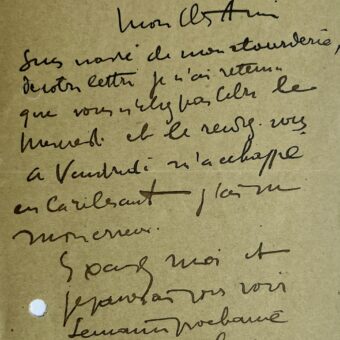 Mon Cher Ami
Suis navré de mon étourderie,
de votre lettre je n'ai retenu
que vous n'étiez pas libre le
mercredi et le rendez-vous
a Vendredi m'a échappé
en la relisant j'ai vu
mon erreur.
Excusez moi et
je passerai vous voir
Semaine prochaine